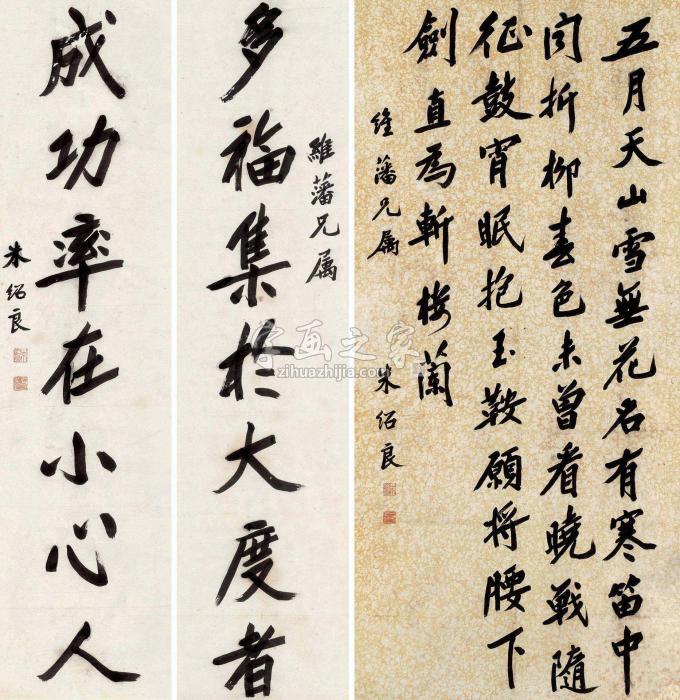 五月天山雪無花名有寒笛中
聞折柳春色未曾看曉戰隨
征鼓宵眠抱玉鞍願将腰下
劍直為斬楼蘭
維藩兄属
朱紹良
維藩兄属
多福集於大度者
成功率在小心人
朱紹良
字画之家
zihuazhijia.com